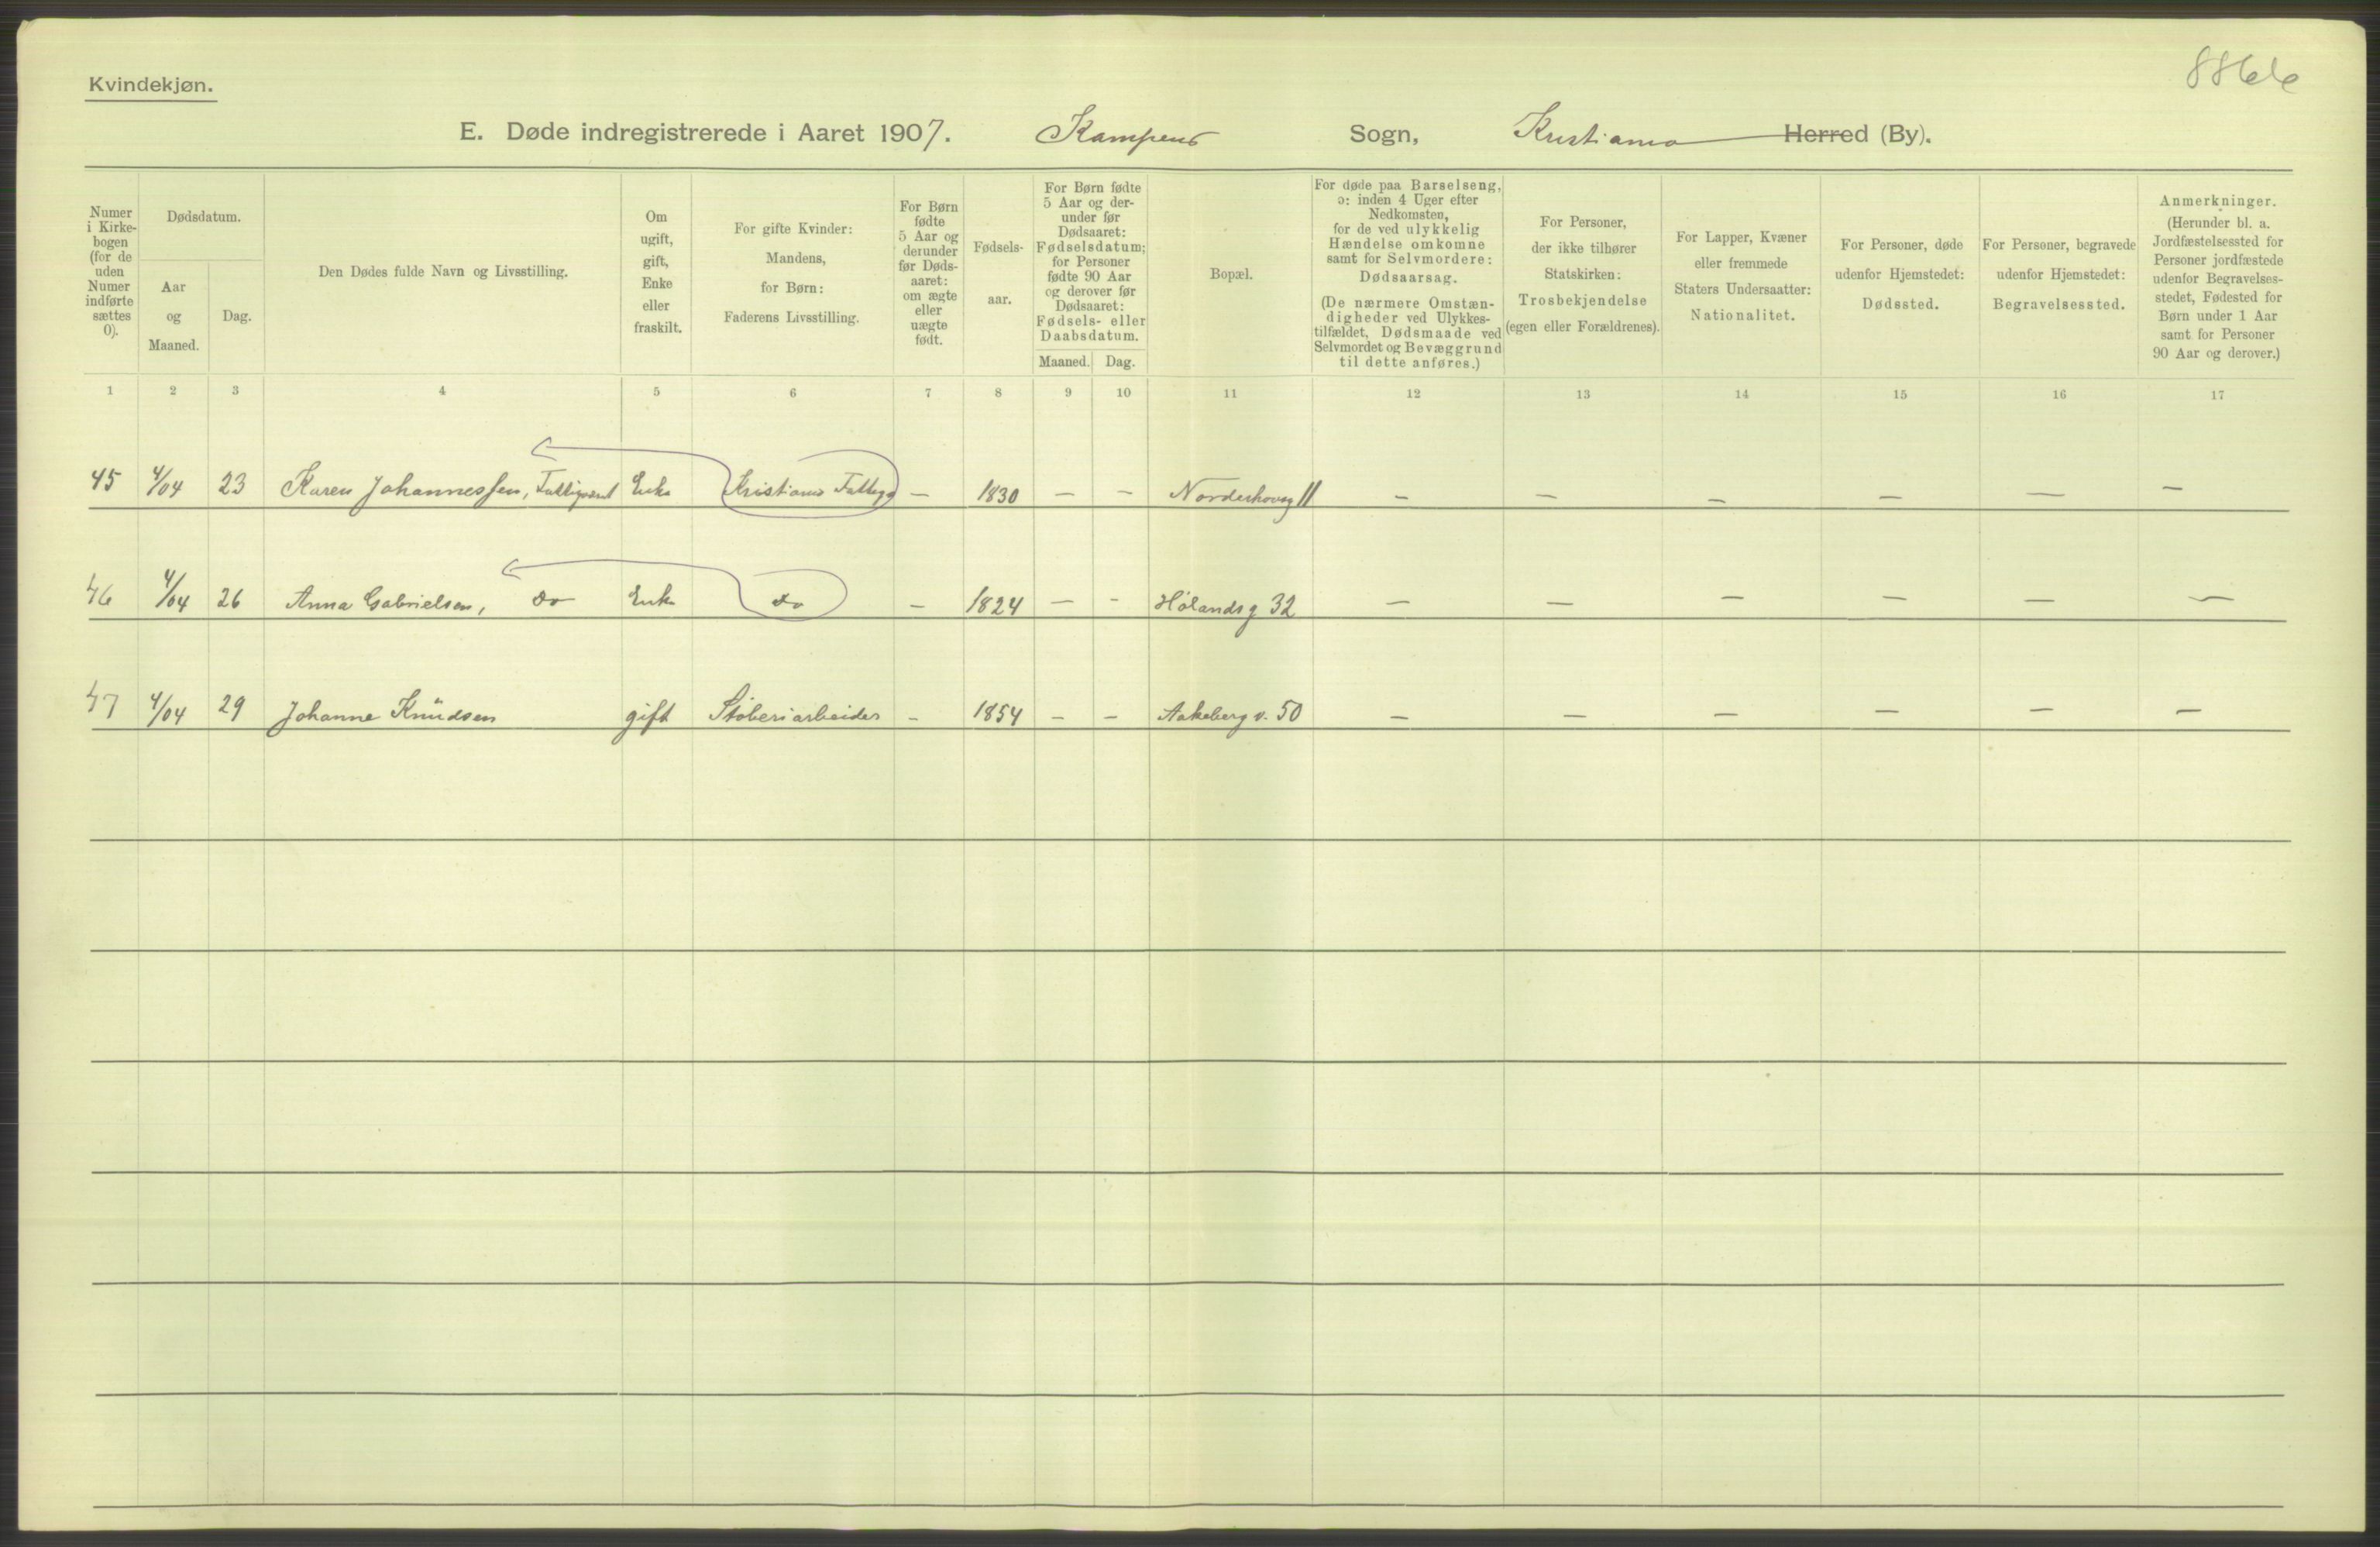 Kvindekjøn.
886
E. Døde indregistrerede i Aaret 1907. Kampens Sogn, Kristiania Herred (By).
Numer i Kirke- bogen (for de uden Numer indførte sættes 0).
Dødsdatum.
Aar og Maaned.
Dag.
Den Dødes fulde Navn og Livsstilling.
Om ugift, gift, Enke eller fraskilt.
For gifte Kvinder: Mandens, for Børn: Faderens Livsstilling.
For Børn fødte 5 Aar og derunder før Døds- aaret: om ægte eller uægte født.
Fødsels- aar.
For Børn fødte 5 Aar og der- under før Dødsaaret: Fødselsdatum; for Personer fødte 90 Aar og derover før Dødsaaret: Fødsels- eller Daabsdatum.
Maaned.
Dag.
Bopæl.
For døde paa Barselseng, ɔ: inden 4 Uger efter Nedkomsten, for de ved ulykkelig Hændelse omkomne samt for Selvmordere: Dødsaarsag. (De nærmere Omstæn- digheder ved Ulykkes- tilfældet, Dødsmaade ved Selvmordet og Bevæggrund til dette anføres.)
For Personer, der ikke tilhører Statskirken: Trosbekjendelse (egen eller Forældrenes).
For Lapper, Kvæner eller fremmede Staters Undersaatter: Nationalitet.
For Personer, døde udenfor Hjemstedet: Dødssted.
For Personer, begravede udenfor Hjemstedet: Begravelsessted.
Anmerkninger. (Herunder bl. a. Jordfæstelsessted for Personer jordfæstede udenfor Begravelses- stedet, Fødested for Børn under 1 Aar samt for Personer 90 Aar og derover.)
1 2 3 4 5 6 7 8 9 10 11 12 13 14 15 16 17
45 4/04 23 Karen Johannessen, Enke Kristiania — 1830 — — Norderhovsg 11 — — — — — —
46 4/04 26 Anna Gabrielsen, do Enke do — 1824 — — Hølandsg 32 — — — — — —
47 4/04 29 Johanne Knudsen gift Støberiarbeider — 1854 — — Aakeberg v. 50 — — — — — —